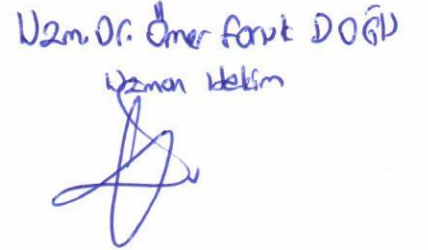 Uzm. Dr. Ömer Faruk DOĞU
Uzman Hekim